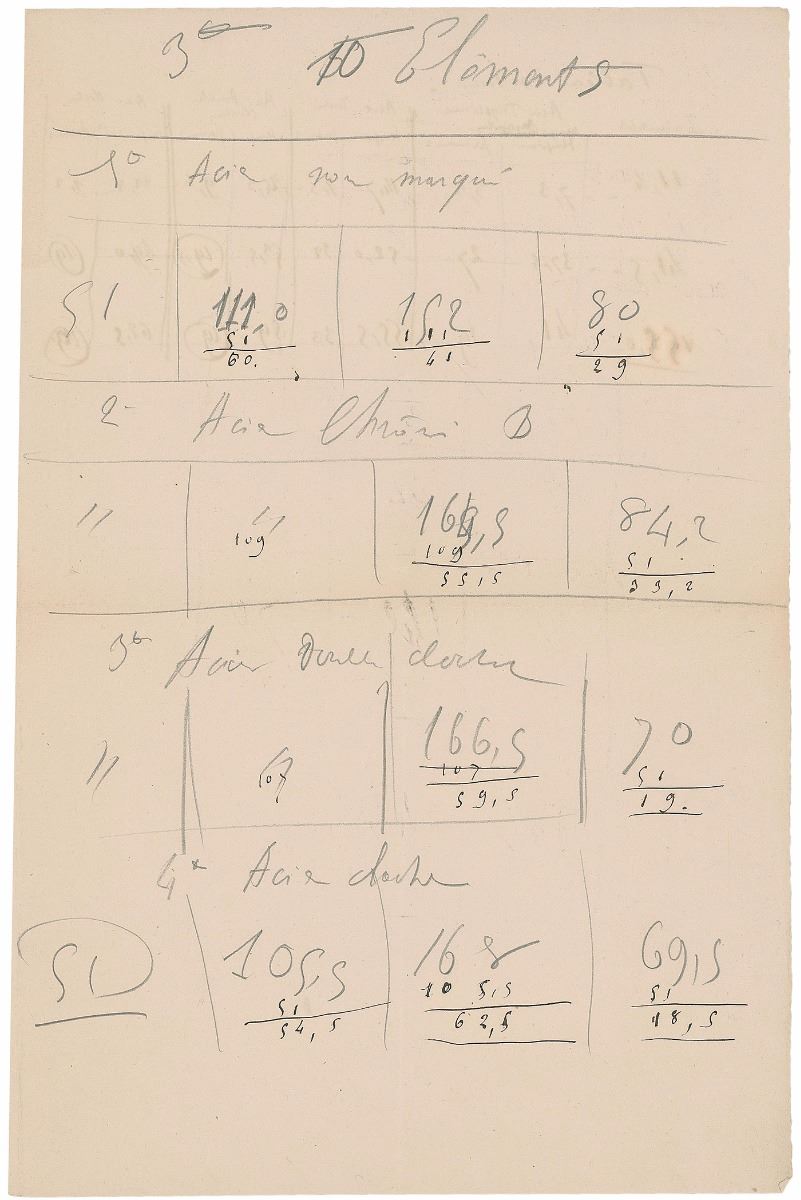 3° 10 Eléments
1° Acier non marqué
51 111,0 152 80
51 111 51
60. 41 29
2° Acier Chrômé B
" " 164,5 84,2
109 109 51
55,5 33,2
3° Acier Double cloche
" " 166,5 70
107 107 51
59,5 19.
4° Acier cloche
51 105,5 168 69,5
51 105,5 51
54,5 62,5 18,5